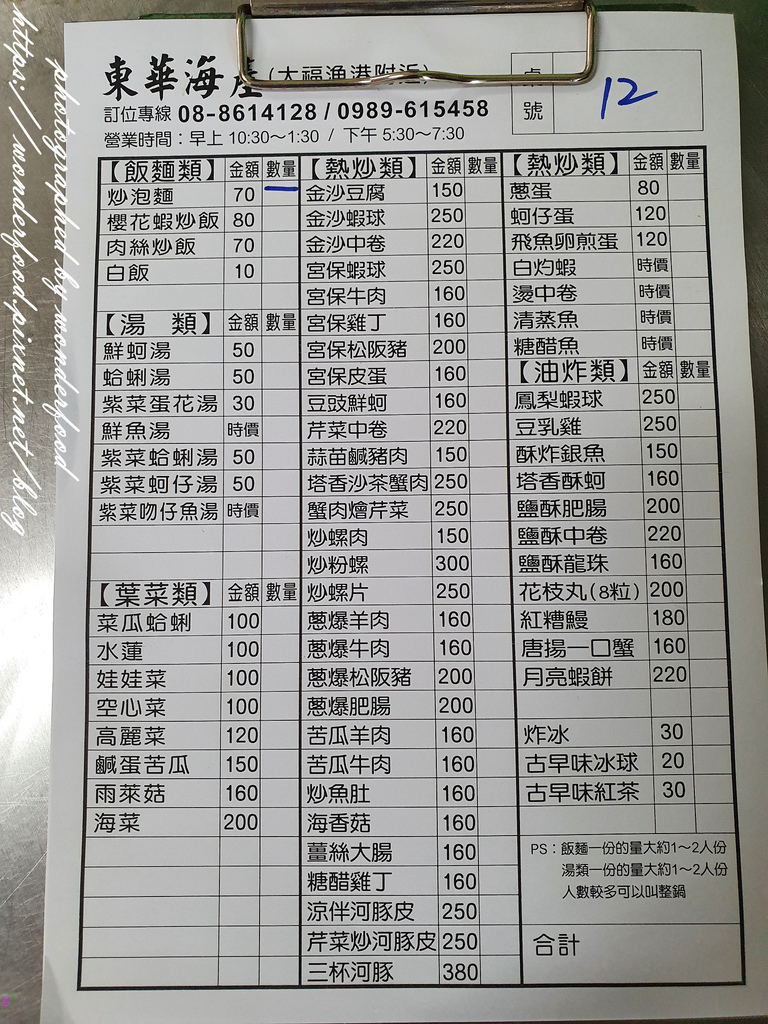 東華海產(大福漁港附近)
訂位專線 08-8614128 / 0989-615458
營業時間：早上 10:30～1:30 / 下午 5:30～7:30
桌號 12
【飯麵類】 金額 數量
炒泡麵 70
櫻花蝦炒飯 80
肉絲炒飯 70
白飯 10
【湯 類】 金額 數量
鮮蚵湯 50
蛤蜊湯 50
紫菜蛋花湯 30
鮮魚湯 時價
紫菜蛤蜊湯 50
紫菜蚵仔湯 50
紫菜吻仔魚湯 時價
【葉菜類】 金額 數量
菜瓜蛤蜊 100
水蓮 100
娃娃菜 100
空心菜 100
高麗菜 120
鹹蛋苦瓜 150
雨萊菇 160
海菜 200
【熱炒類】 金額 數量
金沙豆腐 150
金沙蝦球 250
金沙中卷 220
宮保蝦球 250
宮保牛肉 160
宮保雞丁 160
宮保松阪豬 200
宮保皮蛋 160
豆豉鮮蚵 160
芹菜中卷 220
蒜苗鹹豬肉 150
塔香沙茶蟹肉 250
蟹肉燴芹菜 250
炒螺肉 150
炒粉螺 300
炒螺片 250
蔥爆羊肉 160
蔥爆牛肉 160
蔥爆松阪豬 200
蔥爆肥腸 200
苦瓜羊肉 160
苦瓜牛肉 160
炒魚肚 160
海香菇 160
薑絲大腸 160
糖醋雞丁 160
涼伴河豚皮 250
芹菜炒河豚皮 250
三杯河豚 380
【熱炒類】 金額 數量
蔥蛋 80
蚵仔蛋 120
飛魚卵煎蛋 120
白灼蝦 時價
燙中卷 時價
清蒸魚 時價
糖醋魚 時價
【油炸類】 金額 數量
鳳梨蝦球 250
豆乳雞 250
酥炸銀魚 150
塔香酥蚵 160
鹽酥肥腸 200
鹽酥中卷 220
鹽酥龍珠 160
花枝丸(8粒) 200
紅糟鰻 180
唐揚一口蟹 160
月亮蝦餅 220
炸冰 30
古早味冰球 20
古早味紅茶 30
PS：飯麵一份的量大約1～2人份
湯類一份的量大約1～2人份
人數較多可以叫整鍋
合計
photographed by wonderfood
https://wonderfood.pixnet.net/blog